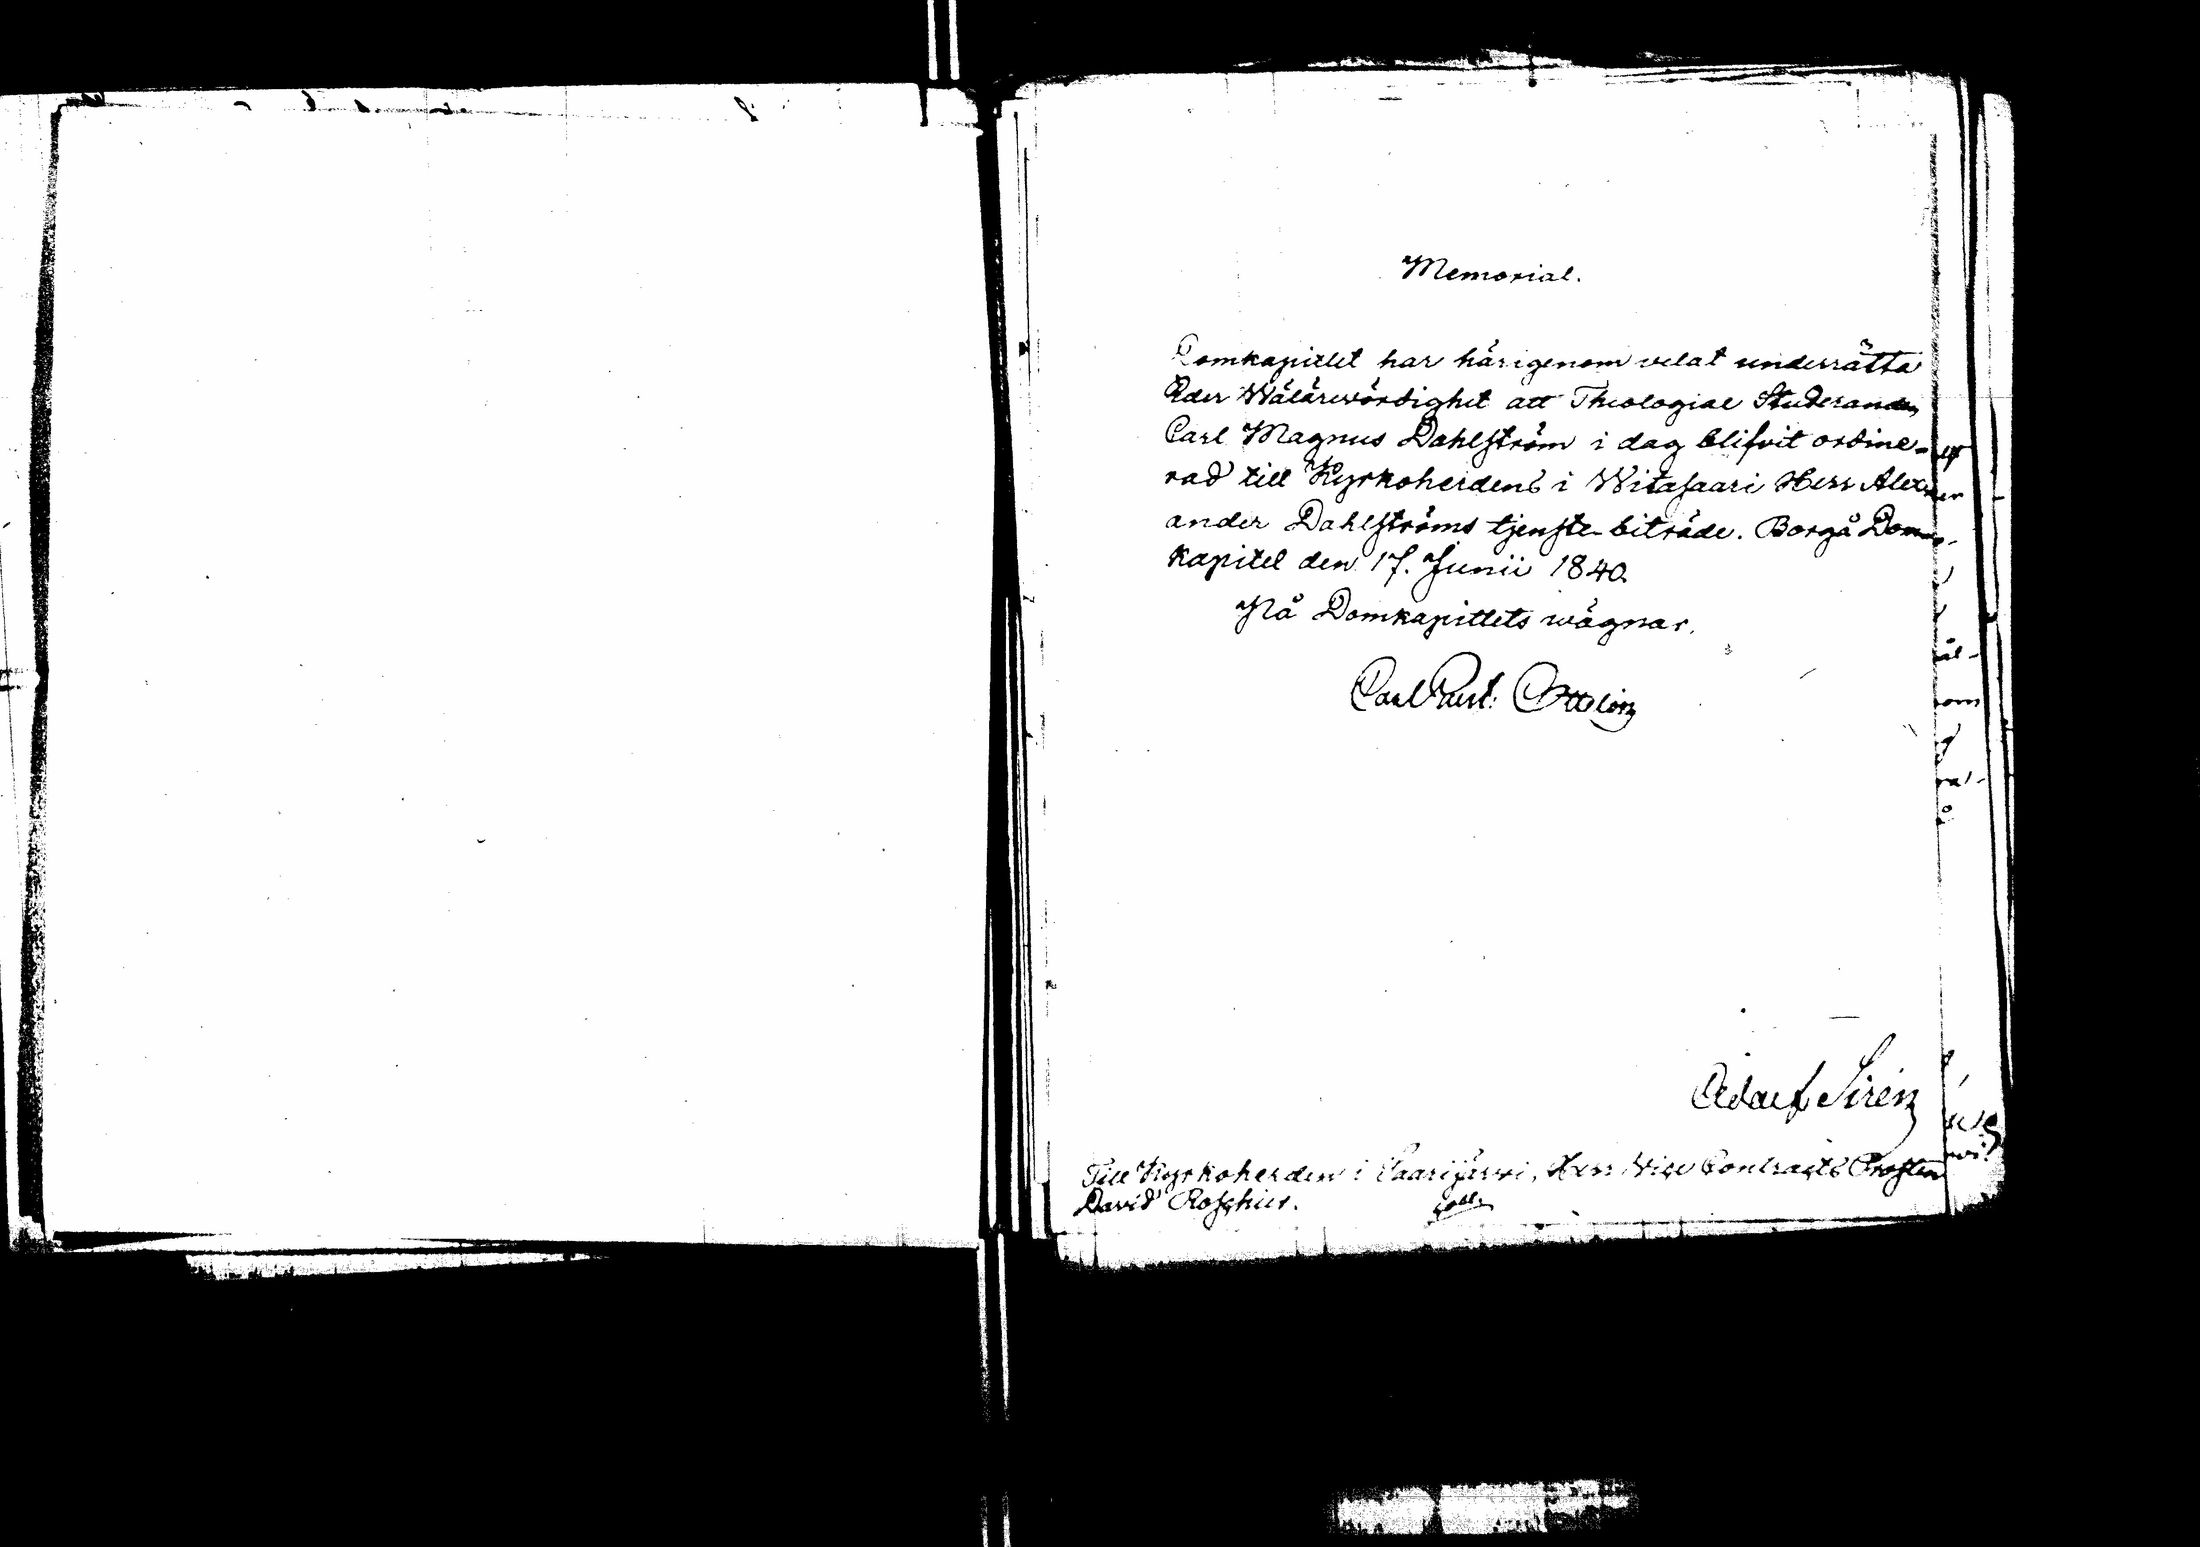 Memorial.
Domkapitlet har härigenom velat underrätta
Eder Wälärewördighet att Theologiae Studeranden
Carl Magnus Dahlström i dag blifvit ordine-
rad till Kyrkoherdens i Witasaari Herr Alex-
ander Dahlströms tjenste-biträde. Borgå Dom-
kapitel den 17. Junii 1840.
På Domkapitlets wägnar.
Carl Gust. Ottelin
Adolf Sirén
Till Kyrkoherden i Saarijärwi, Herr Vice Contracts Prosten
David Roschier.